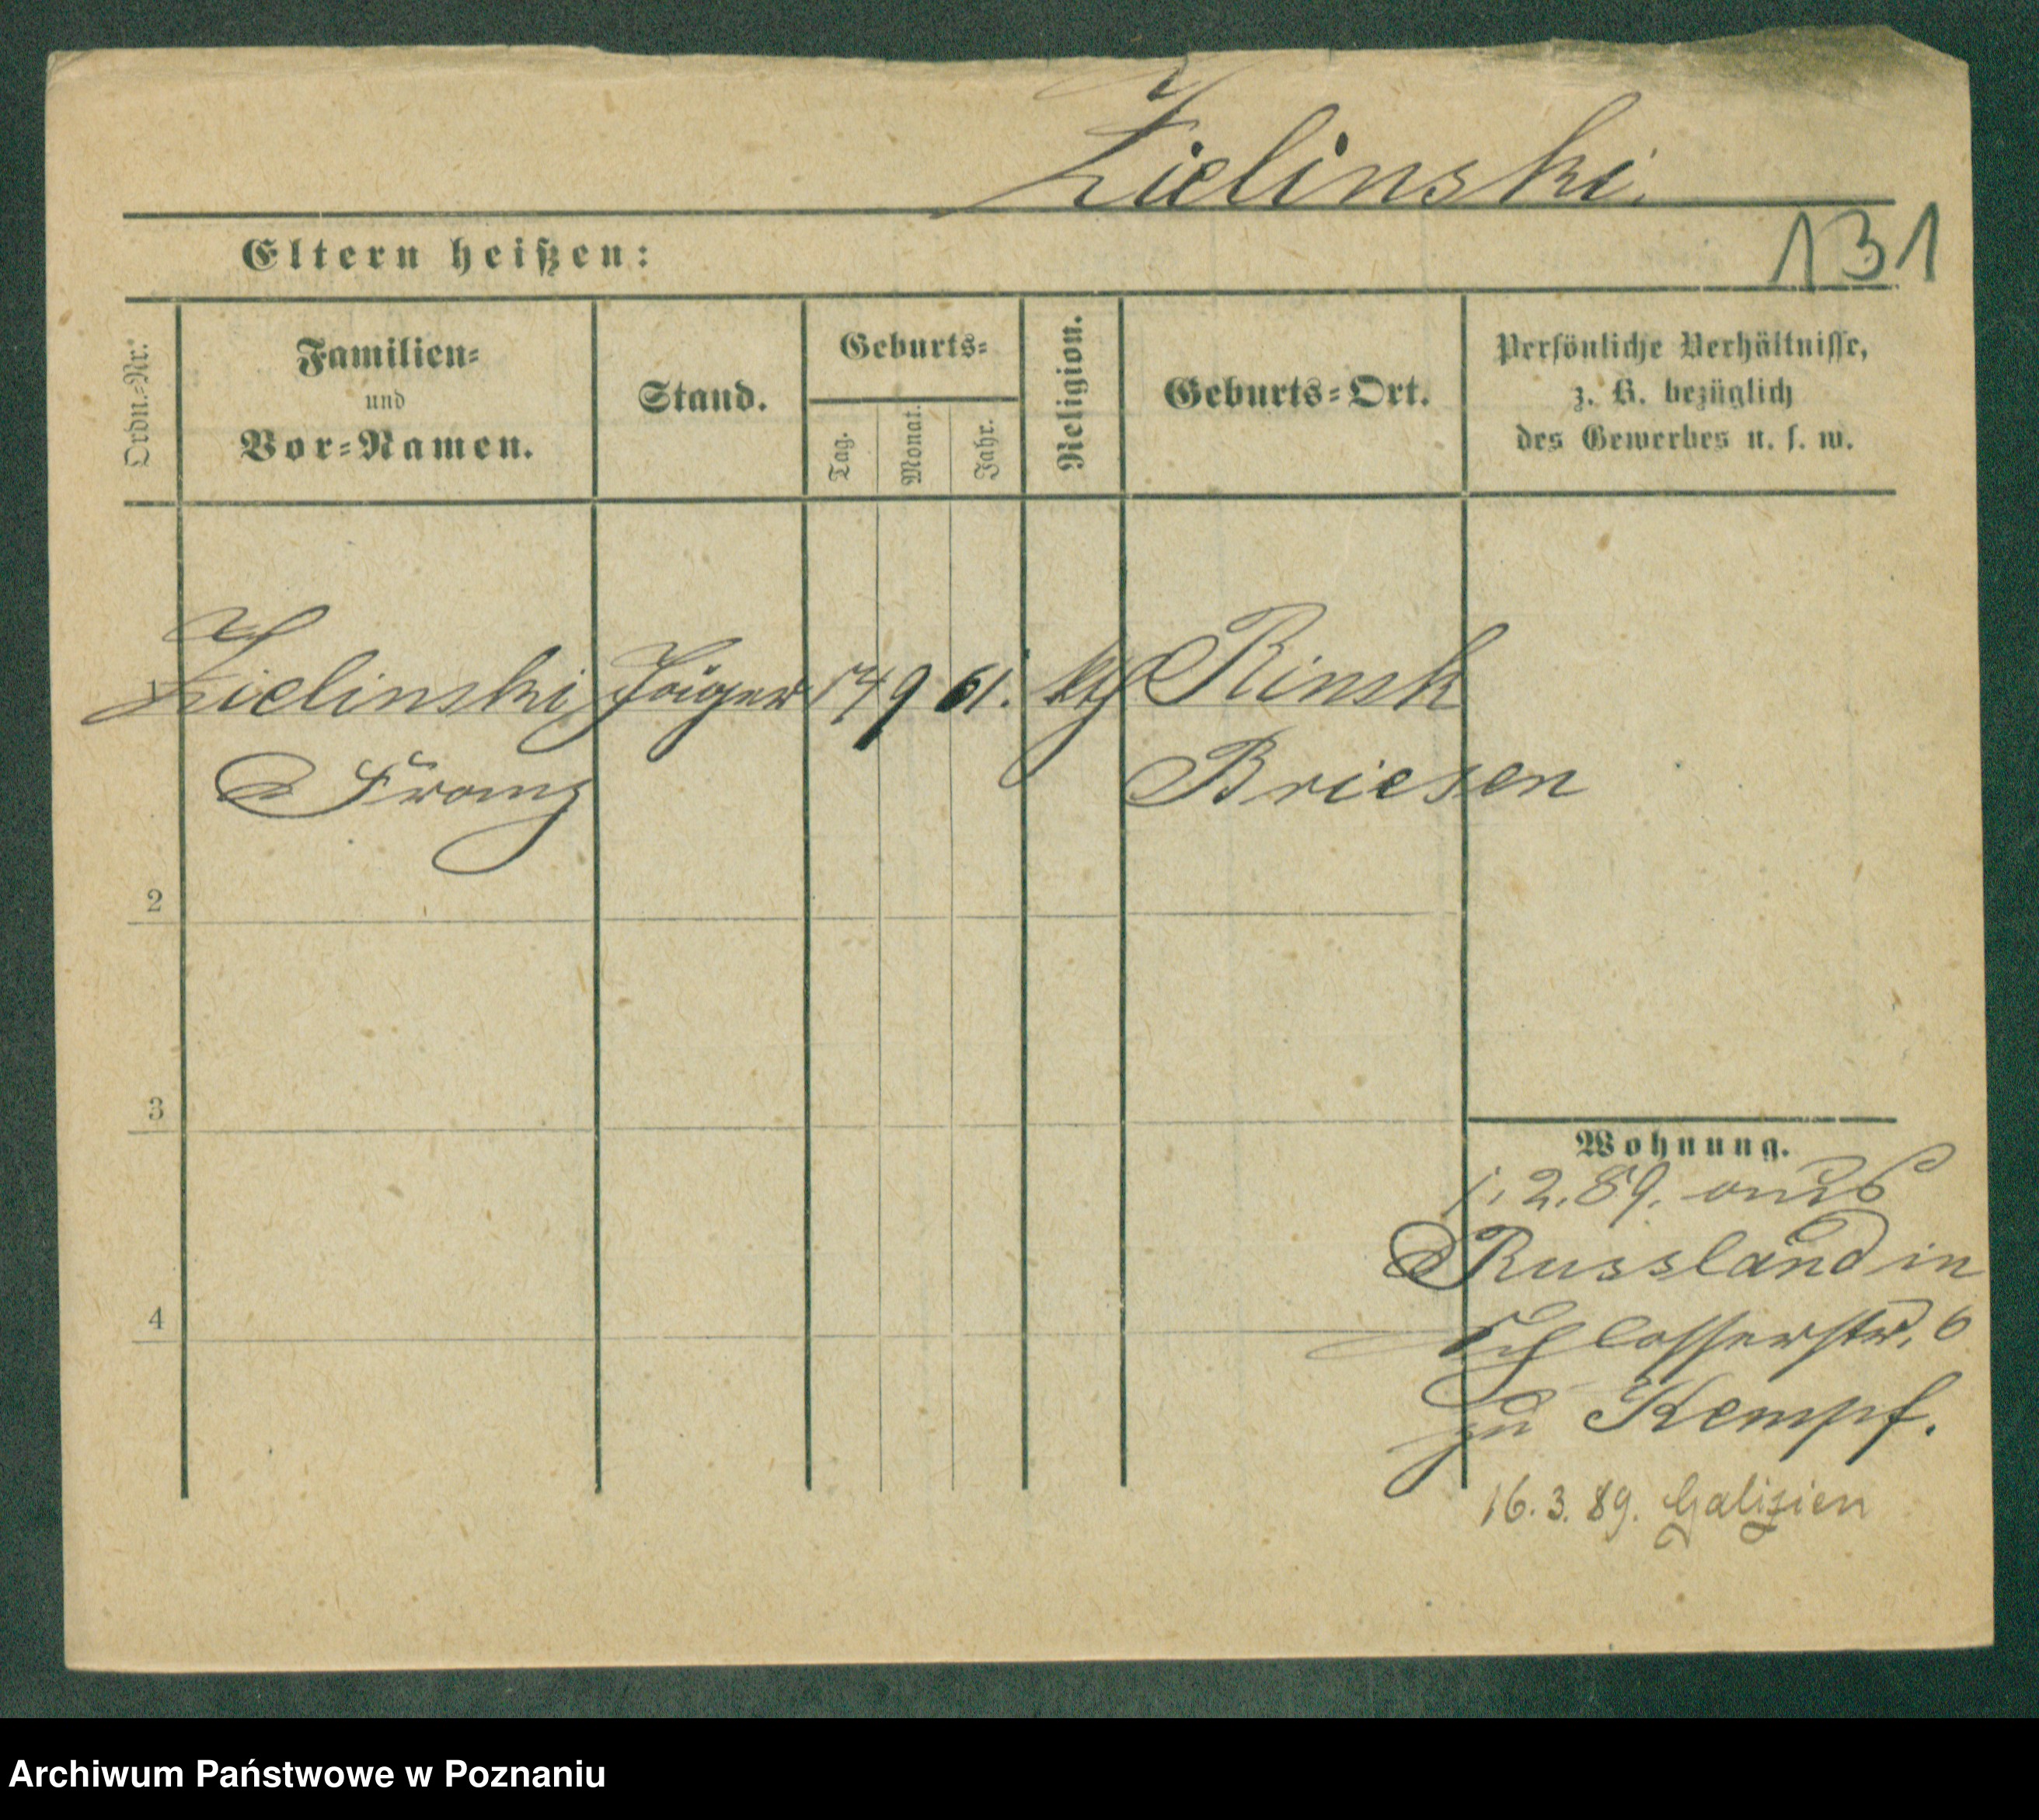 Zielinski.
131
Eltern heißen:
Ordn.-Nr.
Familien-
und
Vor-Namen.
Stand.
Geburts-
Tag.
Monat.
Jahr.
Religion.
Geburts-Ort.
Persönliche Verhältnisse,
z. B. bezüglich
des Gewerbes u. s. w.
Zielinski Jäger 14 9 61. ktl Rinsk
Franz Briesen
2
3
4
Wohnung.
1.2.89. aus
Russland in
Schlosserstr. 6
zu Kempf.
16.3.89. Galizien
Archiwum Państwowe w Poznaniu